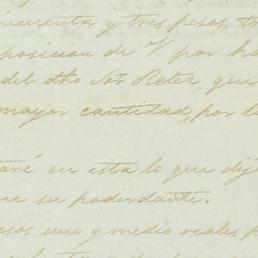 cincuenta y tres pesos, tr
posicion de Y por ha
del dho Sor Retes que
mayor cantidad por l
taré en esta lo que dij
ue su poderdante.
esos uno y medio reales p